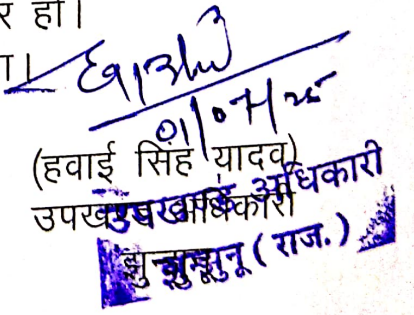 र हो।
ा।
01/07/25
(हवाई सिंह यादव)
उपखण्ड अधिकारी
उपखण्ड अधिकारी
झुन्झुनू
झुन्झुनू (राज.)